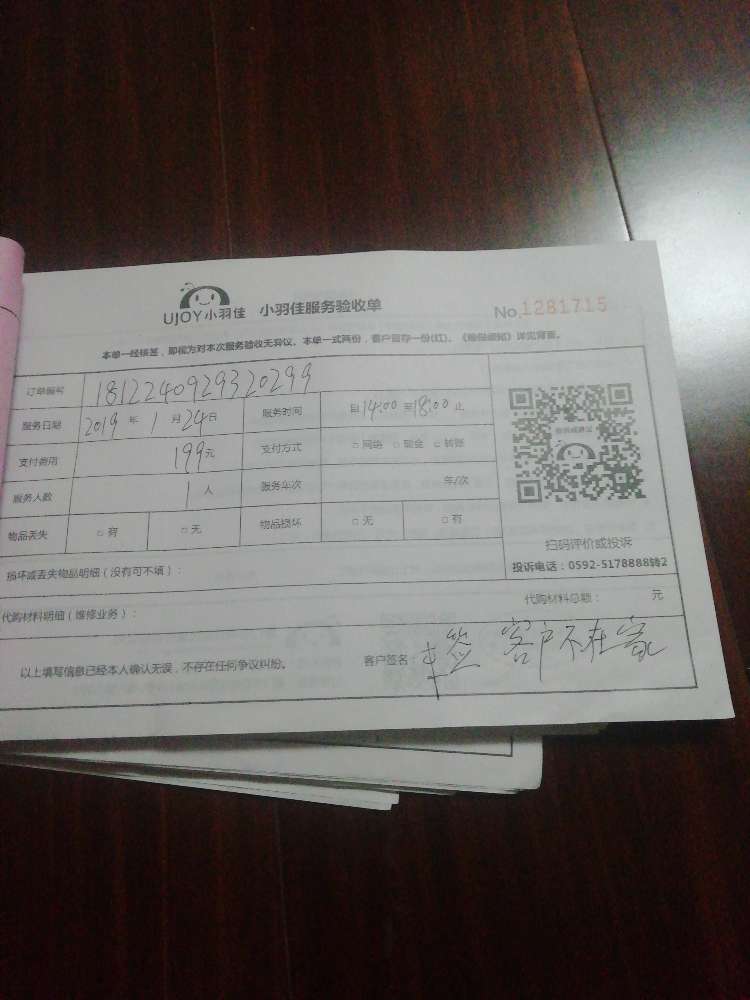 UJOY小羽佳 小羽佳服务验收单 No.1281715
本单一经核签，即视为对本次服务验收无异议。本单一式两份，客户留存一份(红)。《验收须知》详见背面。
订单编号 1812240929320299
服务日期 2019 年 1 月 24 日 服务时间 自14:00 至18:00 止
支付费用 199元 支付方式 □ 网络 □ 现金 □ 转账
服务人数 1 人 服务年次 年/次
物品丢失 □ 有 □ 无 物品损坏 □ 无 □ 有
扫码评价或投诉
投诉电话：0592-5178888转2
损坏或丢失物品明细（没有可不填）：
代购材料明细（维修业务）： 代购材料总额： 元
以上填写信息已经本人确认无误，不存在任何争议纠纷。 客户签名： 签 客户不在家